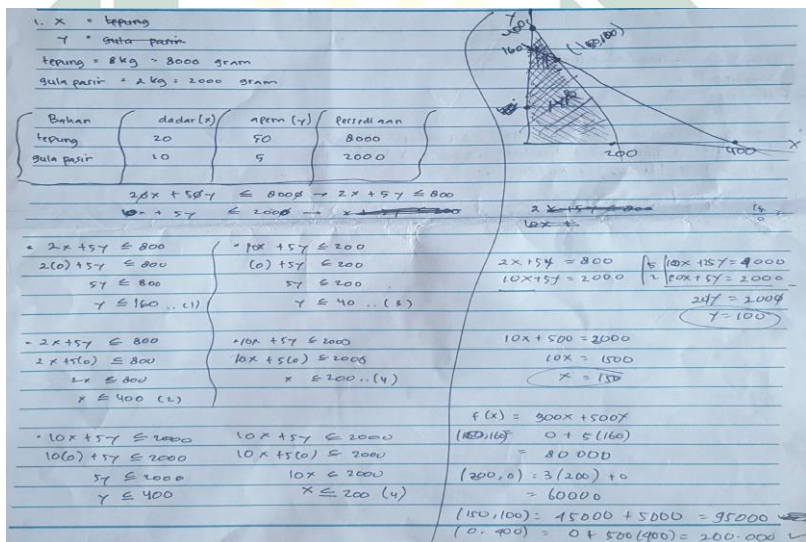 1. X = tepung
Y = gula pasir
tepung = 8 kg = 8000 gram
gula pasir = 2 kg = 2000 gram
Bahan dadar (x) apem (y) Persediaan
tepung 20 50 8000
gula pasir 10 5 2000
20x + 50y ≤ 8000 → 2x + 5y ≤ 800
10x + 5y ≤ 2000 →
• 2x + 5y ≤ 800
2(0) + 5y ≤ 800
5y ≤ 800
y ≤ 160 .. (1)
• 10x + 5y ≤ 200
(0) + 5y ≤ 200
5y ≤ 200
y ≤ 40 .. (3)
- 2x + 5y ≤ 800
2x + 5(0) ≤ 800
2x ≤ 800
x ≤ 400 (2)
• 10x + 5y ≤ 2000
10x + 5(0) ≤ 2000
x ≤ 200 .. (4)
• 10x + 5y ≤ 2000
10(0) + 5y ≤ 2000
5y ≤ 2000
y ≤ 400
10x + 5y ≤ 2000
10x + 5(0) ≤ 2000
10x ≤ 2000
x ≤ 200 (4)
Y
160
200
400
X
2x + 5y = 800 |5| 10x + 25y = 4000
10x + 5y = 2000
y = 100
10x + 500 = 2000
10x = 1500
x = 150
f(x) = 300x + 500y
0 + 5(160)
= 80 000
(200, 0) = 3(200) + 0
= 60000
(150, 100) = 45000 + 5000 = 95000
(0, 400) = 0 + 500(400) = 200.000